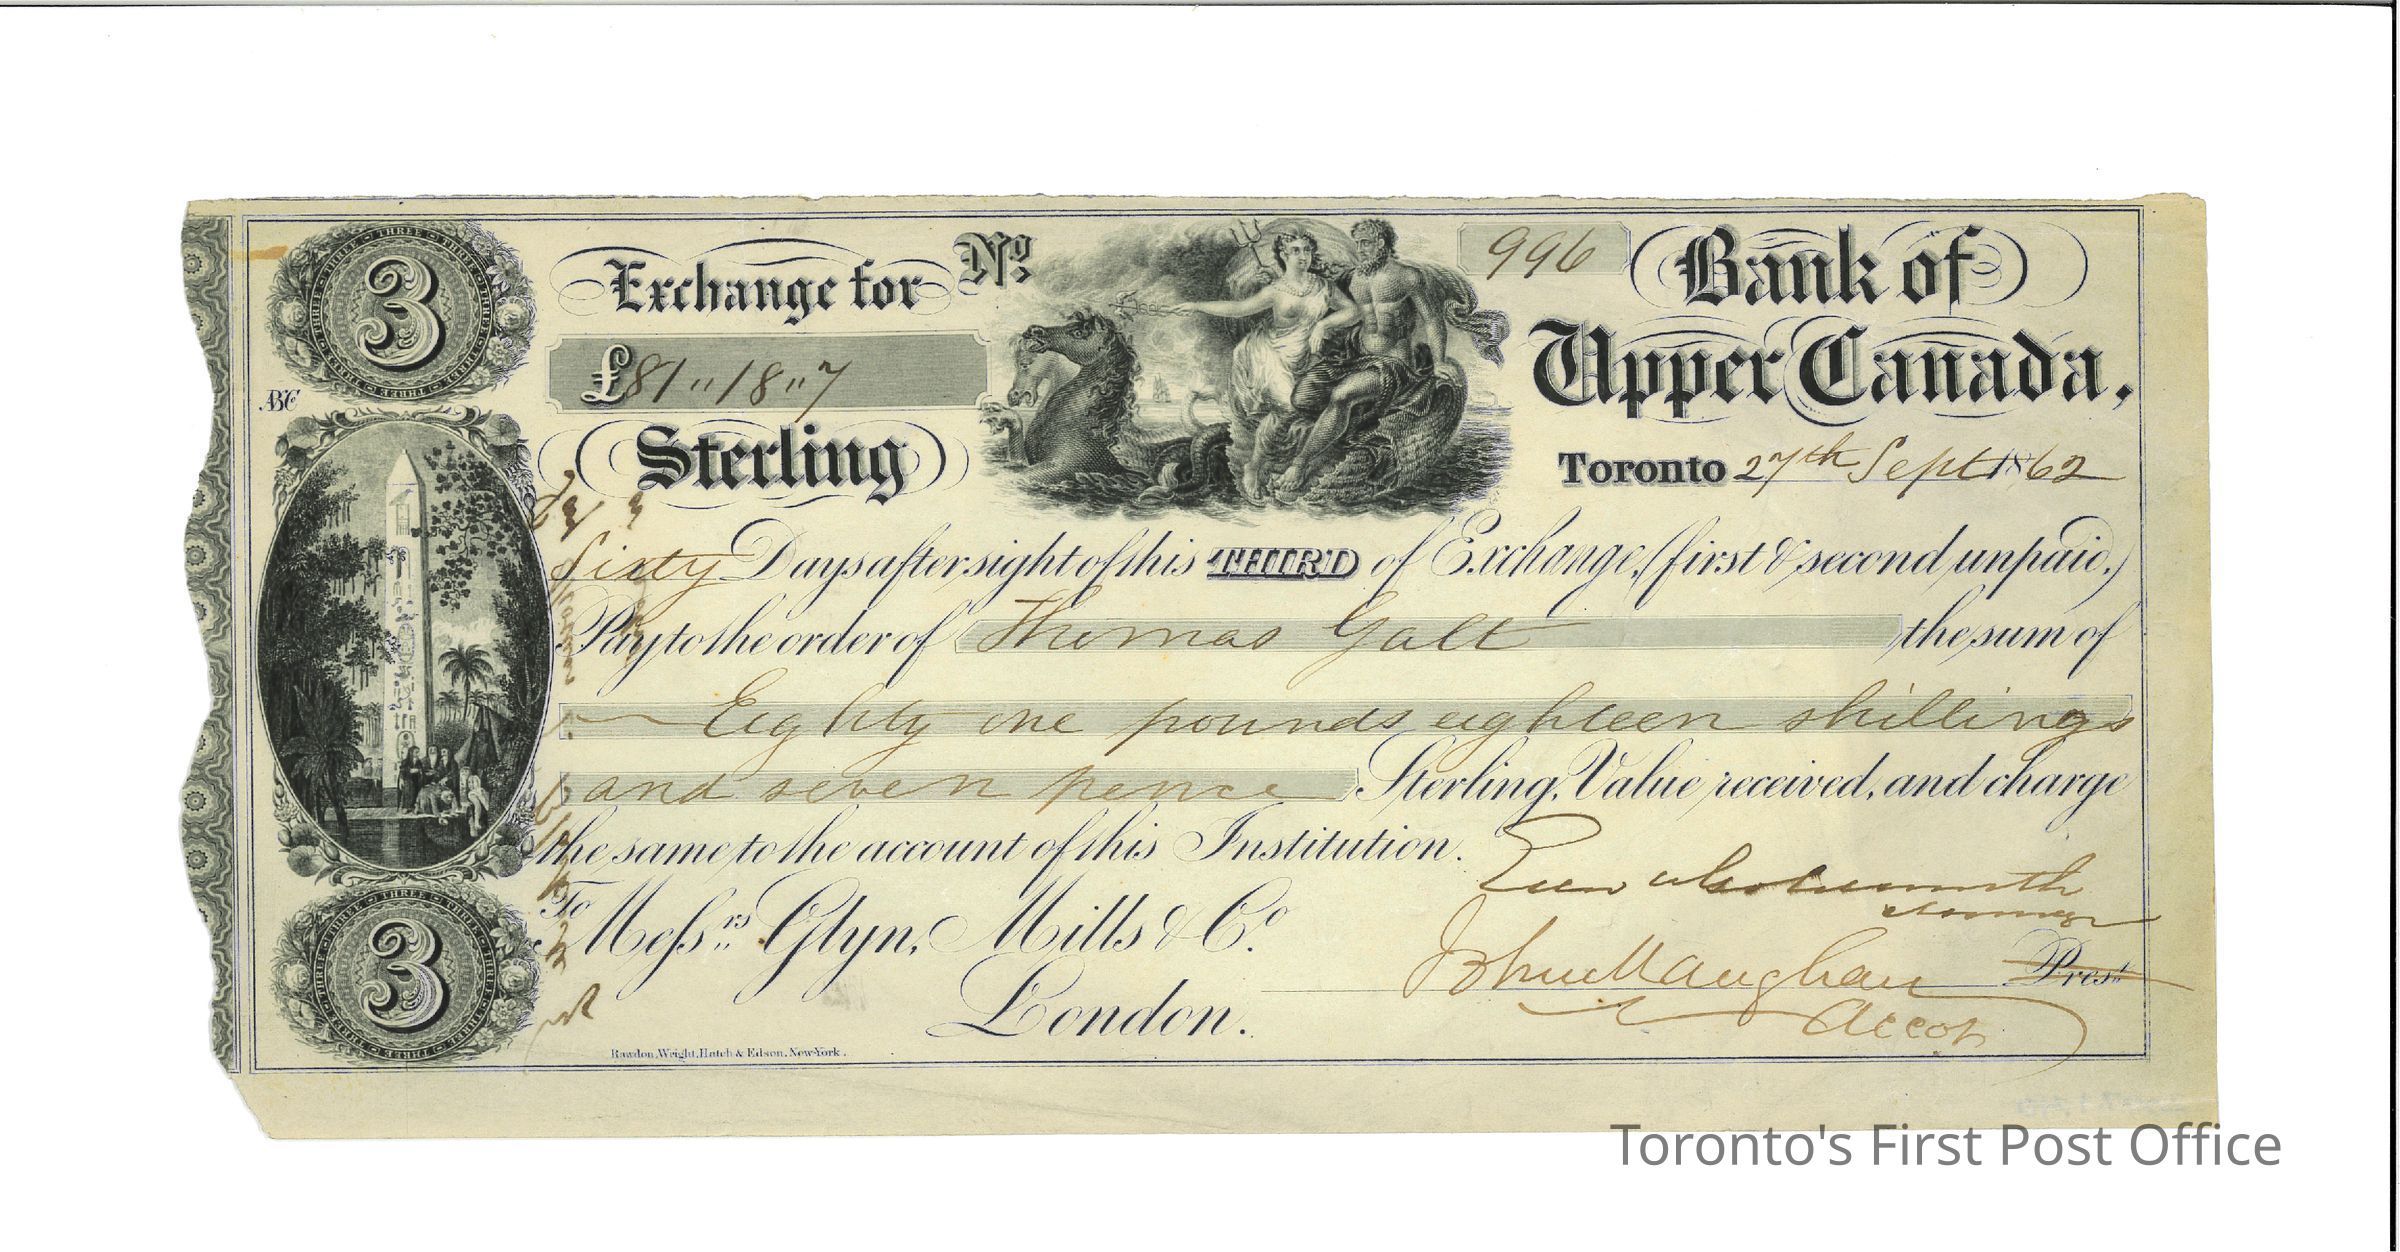 3
Exchange for
No.
996
Bank of
Upper Canada,
£81 " 18 " 7
ABC
Sterling
Toronto 27th Sept 1862
Sixty Days after sight of this THIRD of Exchange, (first & second unpaid,)
Pay to the order of Thomas Galt the sum of
Eighty one pounds eighteen shillings
and seven pence Sterling, Value received, and charge
the same to the account of this Institution.
To Messrs. Glyn, Mills & Co.
London.
John Maughan Prest
Accot
3
Rawdon, Wright, Hatch & Edson, New-York.
Toronto's First Post Office